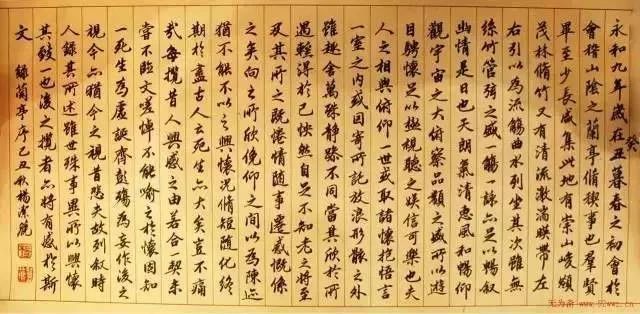 永和九年歲在癸丑暮春之初會於
會稽山陰之蘭亭脩禊事也群賢
畢至少長咸集此地有崇山峻領
茂林脩竹又有清流激湍暎帶左
右引以為流觴曲水列坐其次雖無
絲竹管弦之盛一觴一詠亦足以暢叙
幽情是日也天朗氣清惠風和暢仰
觀宇宙之大俯察品類之盛所以遊
目騁懷足以極視聽之娛信可樂也夫
人之相與俯仰一世或取諸懷抱悟言
一室之內或因寄所託放浪形骸之外
雖趣舍萬殊靜躁不同當其欣於所
遇輕得於己怏然自足不知老之將至
及其所之既惓情隨事遷感慨係
之矣向之所欣俛仰之間以為陳迹
猶不能不以之興懷況脩短隨化終
期於盡古人云死生亦大矣豈不痛
哉每攬昔人興感之由若合一契未
嘗不臨文嗟悼不能喻之於懷固知
一死生為虛誕齊彭殤為妄作後之
視今亦猶今之視昔悲夫故列叙時
人錄其所述雖世殊事異所以興懷
其致一也後之攬者亦將有感於斯
文 錄蘭亭序己丑秋楊潔
无为斋